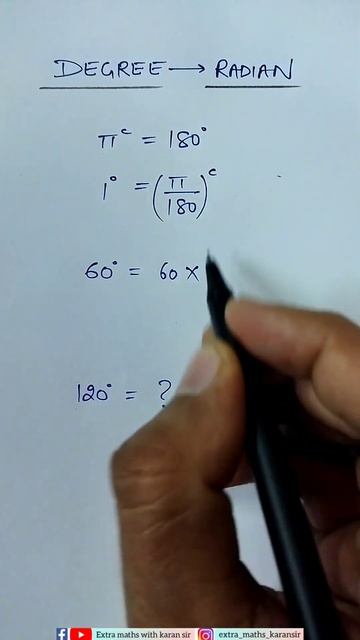 DEGREE → RADIAN
π^c = 180°
1° = (π/180)^c
60° = 60 ×
120° = ?
Extra maths with karan sir extra_maths_karansir